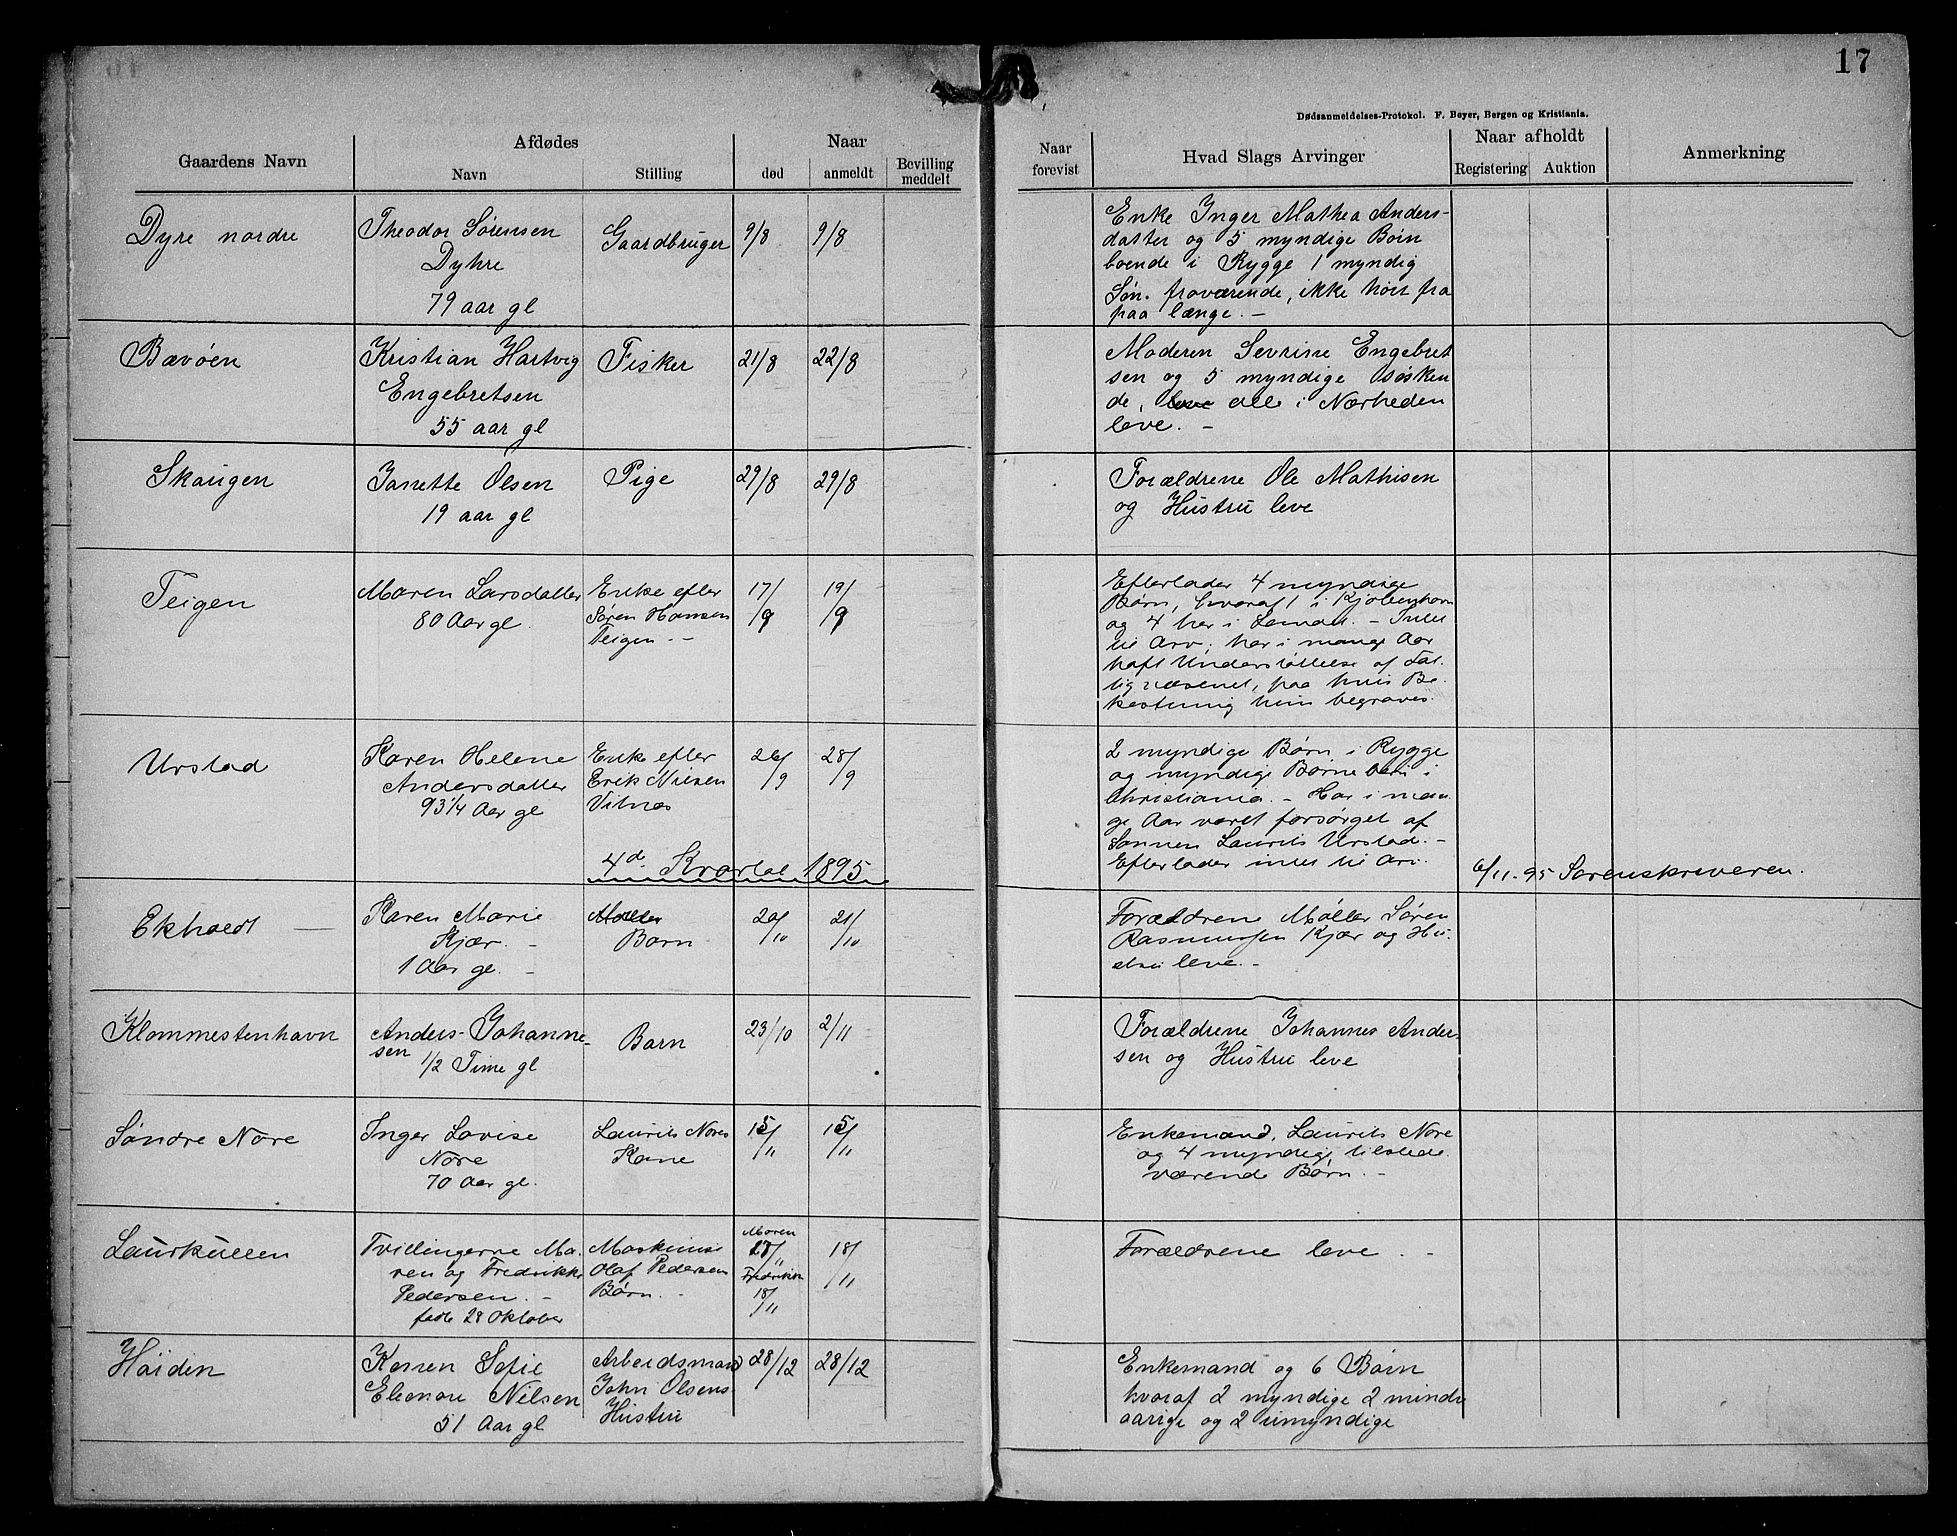 17
Dødsanmeldelses-Protokol. F. Beyer, Bergen og Kristiania.
Gaardens Navn
Afdødes
Navn
Stilling
Naar
død
anmeldt
Bevilling meddelt
Naar forevist
Hvad Slags Arvinger
Naar afholdt
Registering
Auktion
Anmerkning
Dyre nordre
Theodor Sørensen
Dyhre
79 aar gl
Gaardbruger
9/8
9/8
Enke Inger Mathea Anders-
datter og 5 myndige Børn
boende i Rygge 1 myndig
Søn fraværende, ikke hørt fra
paa længe. -
Bævøen
Kristian Hartvig
Engebretsen
55 aar gl
Fisker
21/8
22/8
Moderen Sevrine Engebret
sen og 5 myndige søsken
de, leve alle i Nærheden
leve. -
Skaugen
Janette Olsen
19 aar gl
Pige
29/8
29/8
Forældrene Ole Mathisen
og Hustru leve
Teigen
Maren Larsdatter
80 Aar gl.
Enke efter
Søren Hansen
Teigen -
17/9
19/9
Efterlader 4 myndige
Børn, hvoraf 1 i Kjøbenhavn
og 4 her i Landet. - Intet
til Arv, har i mange Aar
haft Understøttelse af Fat-
tigvæsenet, paa hvis Be-
kostning hun begraves.
Urstad
Karen Helene
Andersdatter
93 1/4 Aar gl
Enke efter
Erik Nilsen
Vitnæs
26/9
28/9
2 myndige Børn i Rygge
og myndige Børnebørn i
Christiania. - Har i man-
ge Aar været forsørget af
Sønnen Laurits Urstad. -
Efterlader intet til Arv.
4d Kvartal 1895
6/11-95 Sorenskriveren.
Ekholdt
Karen Marie
Kjær. -
1 Aar gl. -
Møller
Barn
20/10
21/10
Forældrene Møller Søren
Rasmussen Kjær og Hu-
stru leve. -
Klommestenhavn
Anders Johanne-
sen 1/2 Time gl
Barn
23/10
2/11
Forældrene Johannes Ander-
sen og Hustru leve
Søndre Nore
Inger Lovise
Nore
70 Aar gl.
Laurits Nores
Kone
15/11
15/11
Enkemand, Laurits Nore
og 4 myndige, tilstede-
værende Børn. -
Laurkullen
Tvillingerne Ma-
ren og Fredrikke
Pedersen. -
født 28 Oktober
Maskinist
Olaf Pedersen
Børn. -
Maren
17/11
Fredrikke
18/11
18/11
Forældrene leve. -
Høiden
Karen Sofie
Eleonore Nilsen
51 Aar gl
Arbeidsmand
John Olsens
Hustru
28/12
28/12
Enkemand og 6 Børn
hvoraf 2 myndige 2 mindre
aarige og 2 umyndige